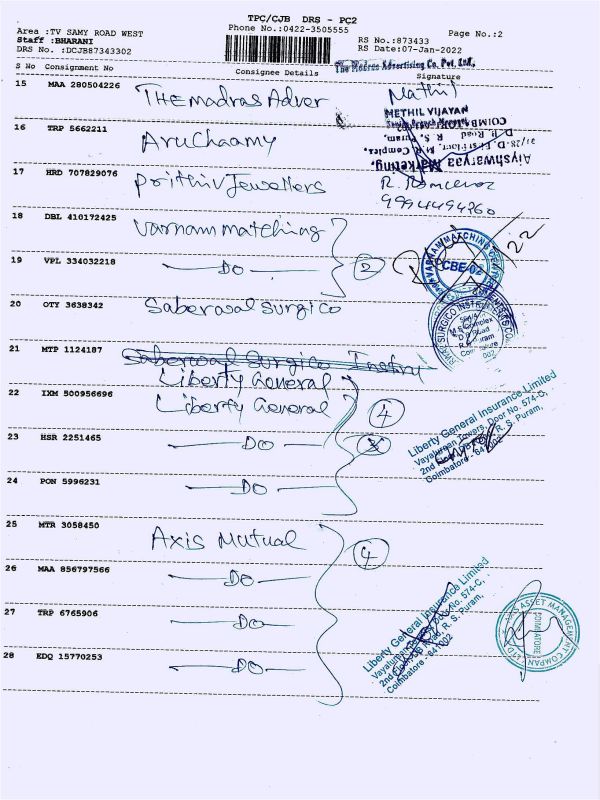 TPC/CJB DRS - PC2
Area :TV SAMY ROAD WEST
Phone No.:0422-3505555
Page No.:2
Staff :BHARANI
RS No.:873433
DRS No. :DCJB87343302
RS Date:07-Jan-2022
The Madras Advertising Co. Pvt. Ltd.,
S No Consignment No Consignee Details Signature
15 MAA 280504226 THE Madras Adver
Mathil
METHIL VIJAYAN
16 TRP 5662211 AruChaamy
Aiyshwaryaa Marketing,
21/28, D- First Floor, M.R. Complex,
D.B. Road, R. S. Puram,
COIMB
17 HRD 707829076 Prithiv Jewellers
9994494760
18 DBL 410172425 Varnam matching
VARNAM MATCHING
CBE-02
2
22
19 VPL 334032218 DO
20 OTY 3638342 Saberwal Surgico
SURGICO INSTR
M.S. Complex
D.B. Road
Coimbatore
002
21 MTP 1124187 Saberwal Surgico Instru
Liberty General
22 IXM 500956696 Liberty General
4
Liberty General Insurance Limited
Vayalureen Towers, Door No. 574-C,
2nd Floor, R. S. Puram,
Coimbatore - 641 002
23 HSR 2251465 DO
24 PON 5996231 DO
25 MTR 3058450 Axis Mutual
4
26 MAA 856797566 DO
Liberty General Insurance Limited
Door No. 574-C,
2nd Floor, R. S. Puram,
Coimbatore - 641 002
AXIS ASSET MANAGEMENT COMPANY LTD
COIMBATORE
27 TRP 6765906 DO
28 EDQ 15770253 DO